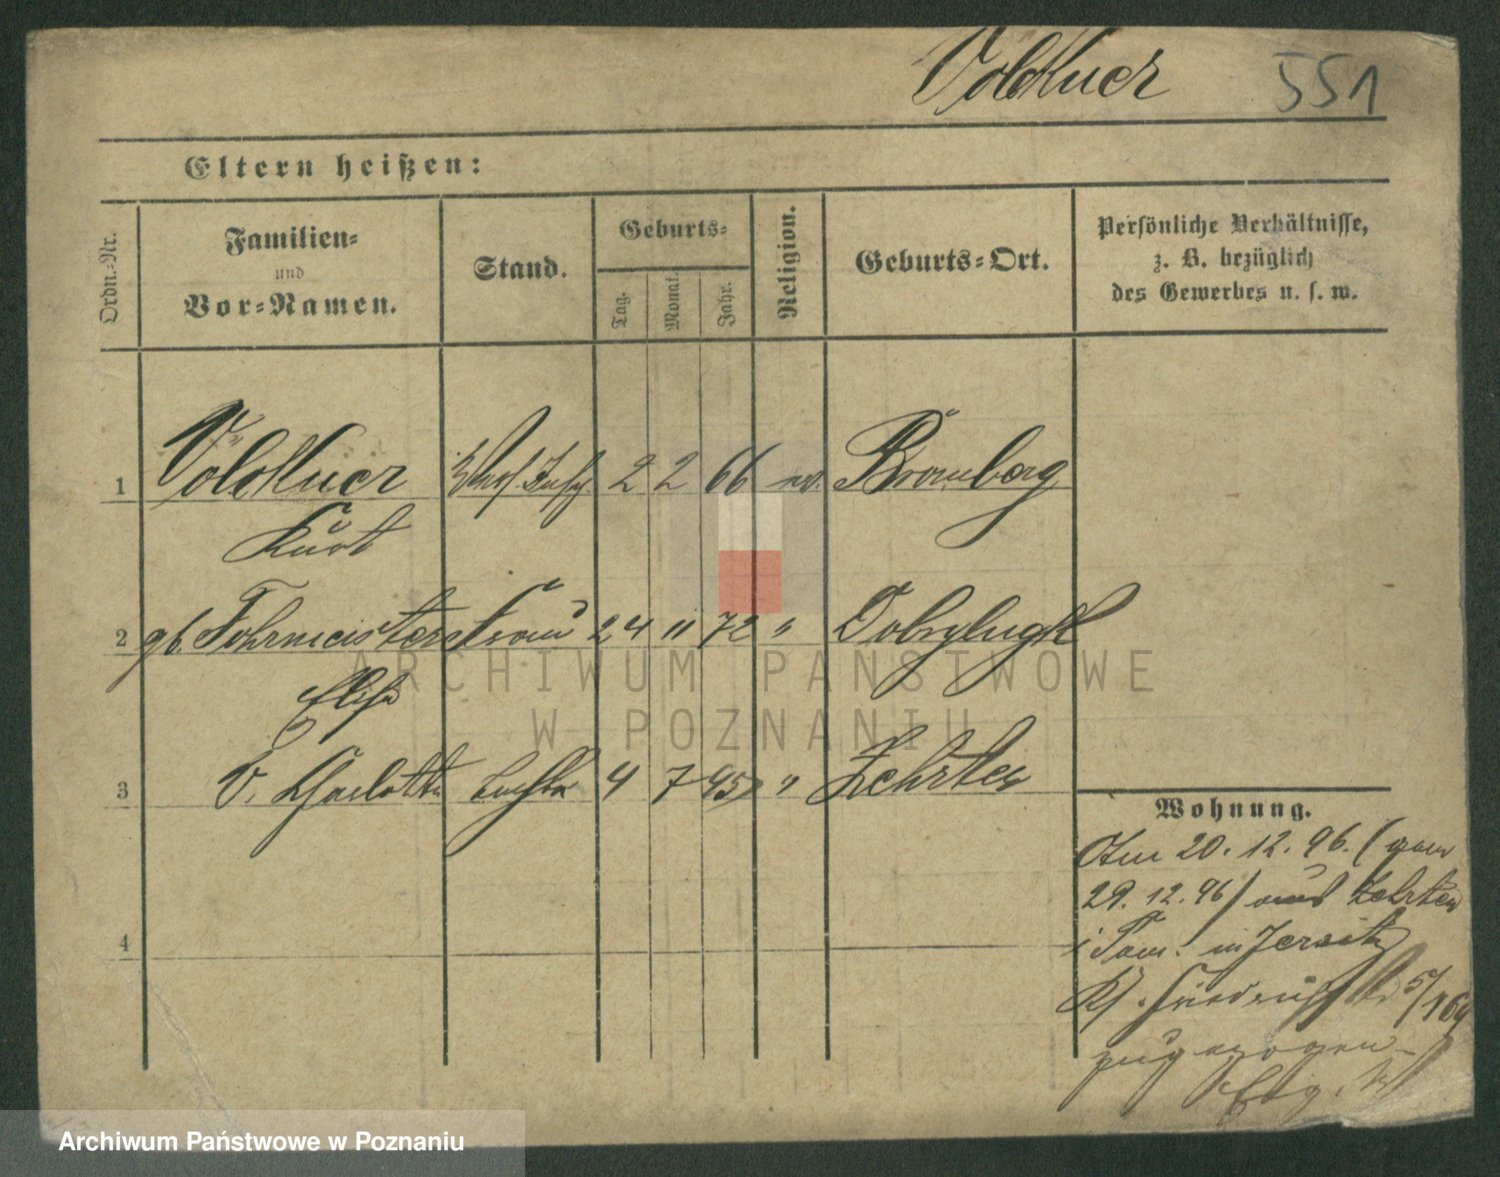 Völckner 551
Eltern heißen:
Ordn.-Nr.
Familien-
und
Vor-Namen.
Stand.
Geburts-
Tag.
Monat.
Jahr.
Religion.
Geburts-Ort.
Persönliche Verhältnisse,
z. B. bezüglich
des Gewerbes u. s. w.
1 Völckner 2 2 66 ev. Bromberg
Kurt
2 gb. Fohrmeister Frau 24 11 72 " Dobrylugk
Elise
3 V. Charlotte Tochter 4 7 95 " Zehrten
Wohnung.
Am 20. 12. 96. (gem
29. 12. 96) aus Zehrten
in Jersitz
5/169
zugezogen
4
ARCHIWUM PAŃSTWOWE
W POZNANIU
Archiwum Państwowe w Poznaniu